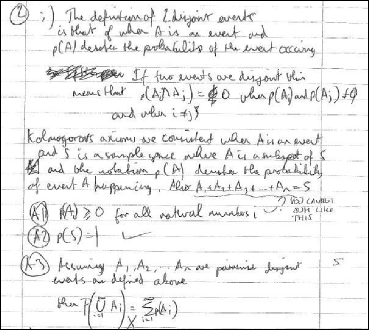 ② i) The definition of 2 disjoint events
is that of when A is an event and
p(A) denotes the probability of the event occuring
If two events are disjoint this
means that p(A∩Aj) = 0 when p(Ai) and p(Aj) ≠ 0
and when i ≠ j
Kolmogorovs axioms are consistent when A is an event
and S is a sample space where A is a subset of S
and the notation p(A) denotes the probability
of event A happening. Also A1+A2+A3+...+An = S
? YOU CANNOT
SUM LIKE
THIS
(A1) P(A) ≥ 0 for all natural numbers i ✓
(A2) p(S)=1 ✓
(A3) Assuming A1, A2, ... An are pairwise disjoint 5
events as defined above
then P(⋃ Ai) = Σ p(Ai)
i=1 i=1
X